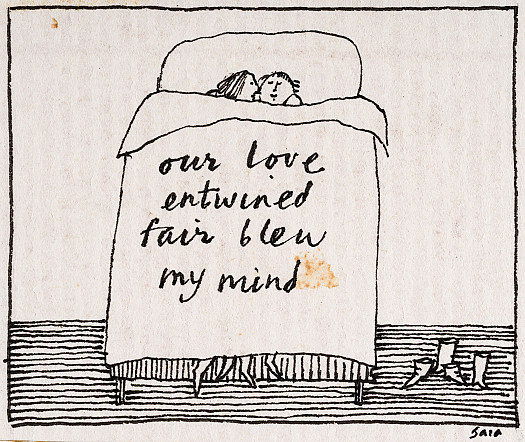 our love
entwined
fair blew
my mind
Sara